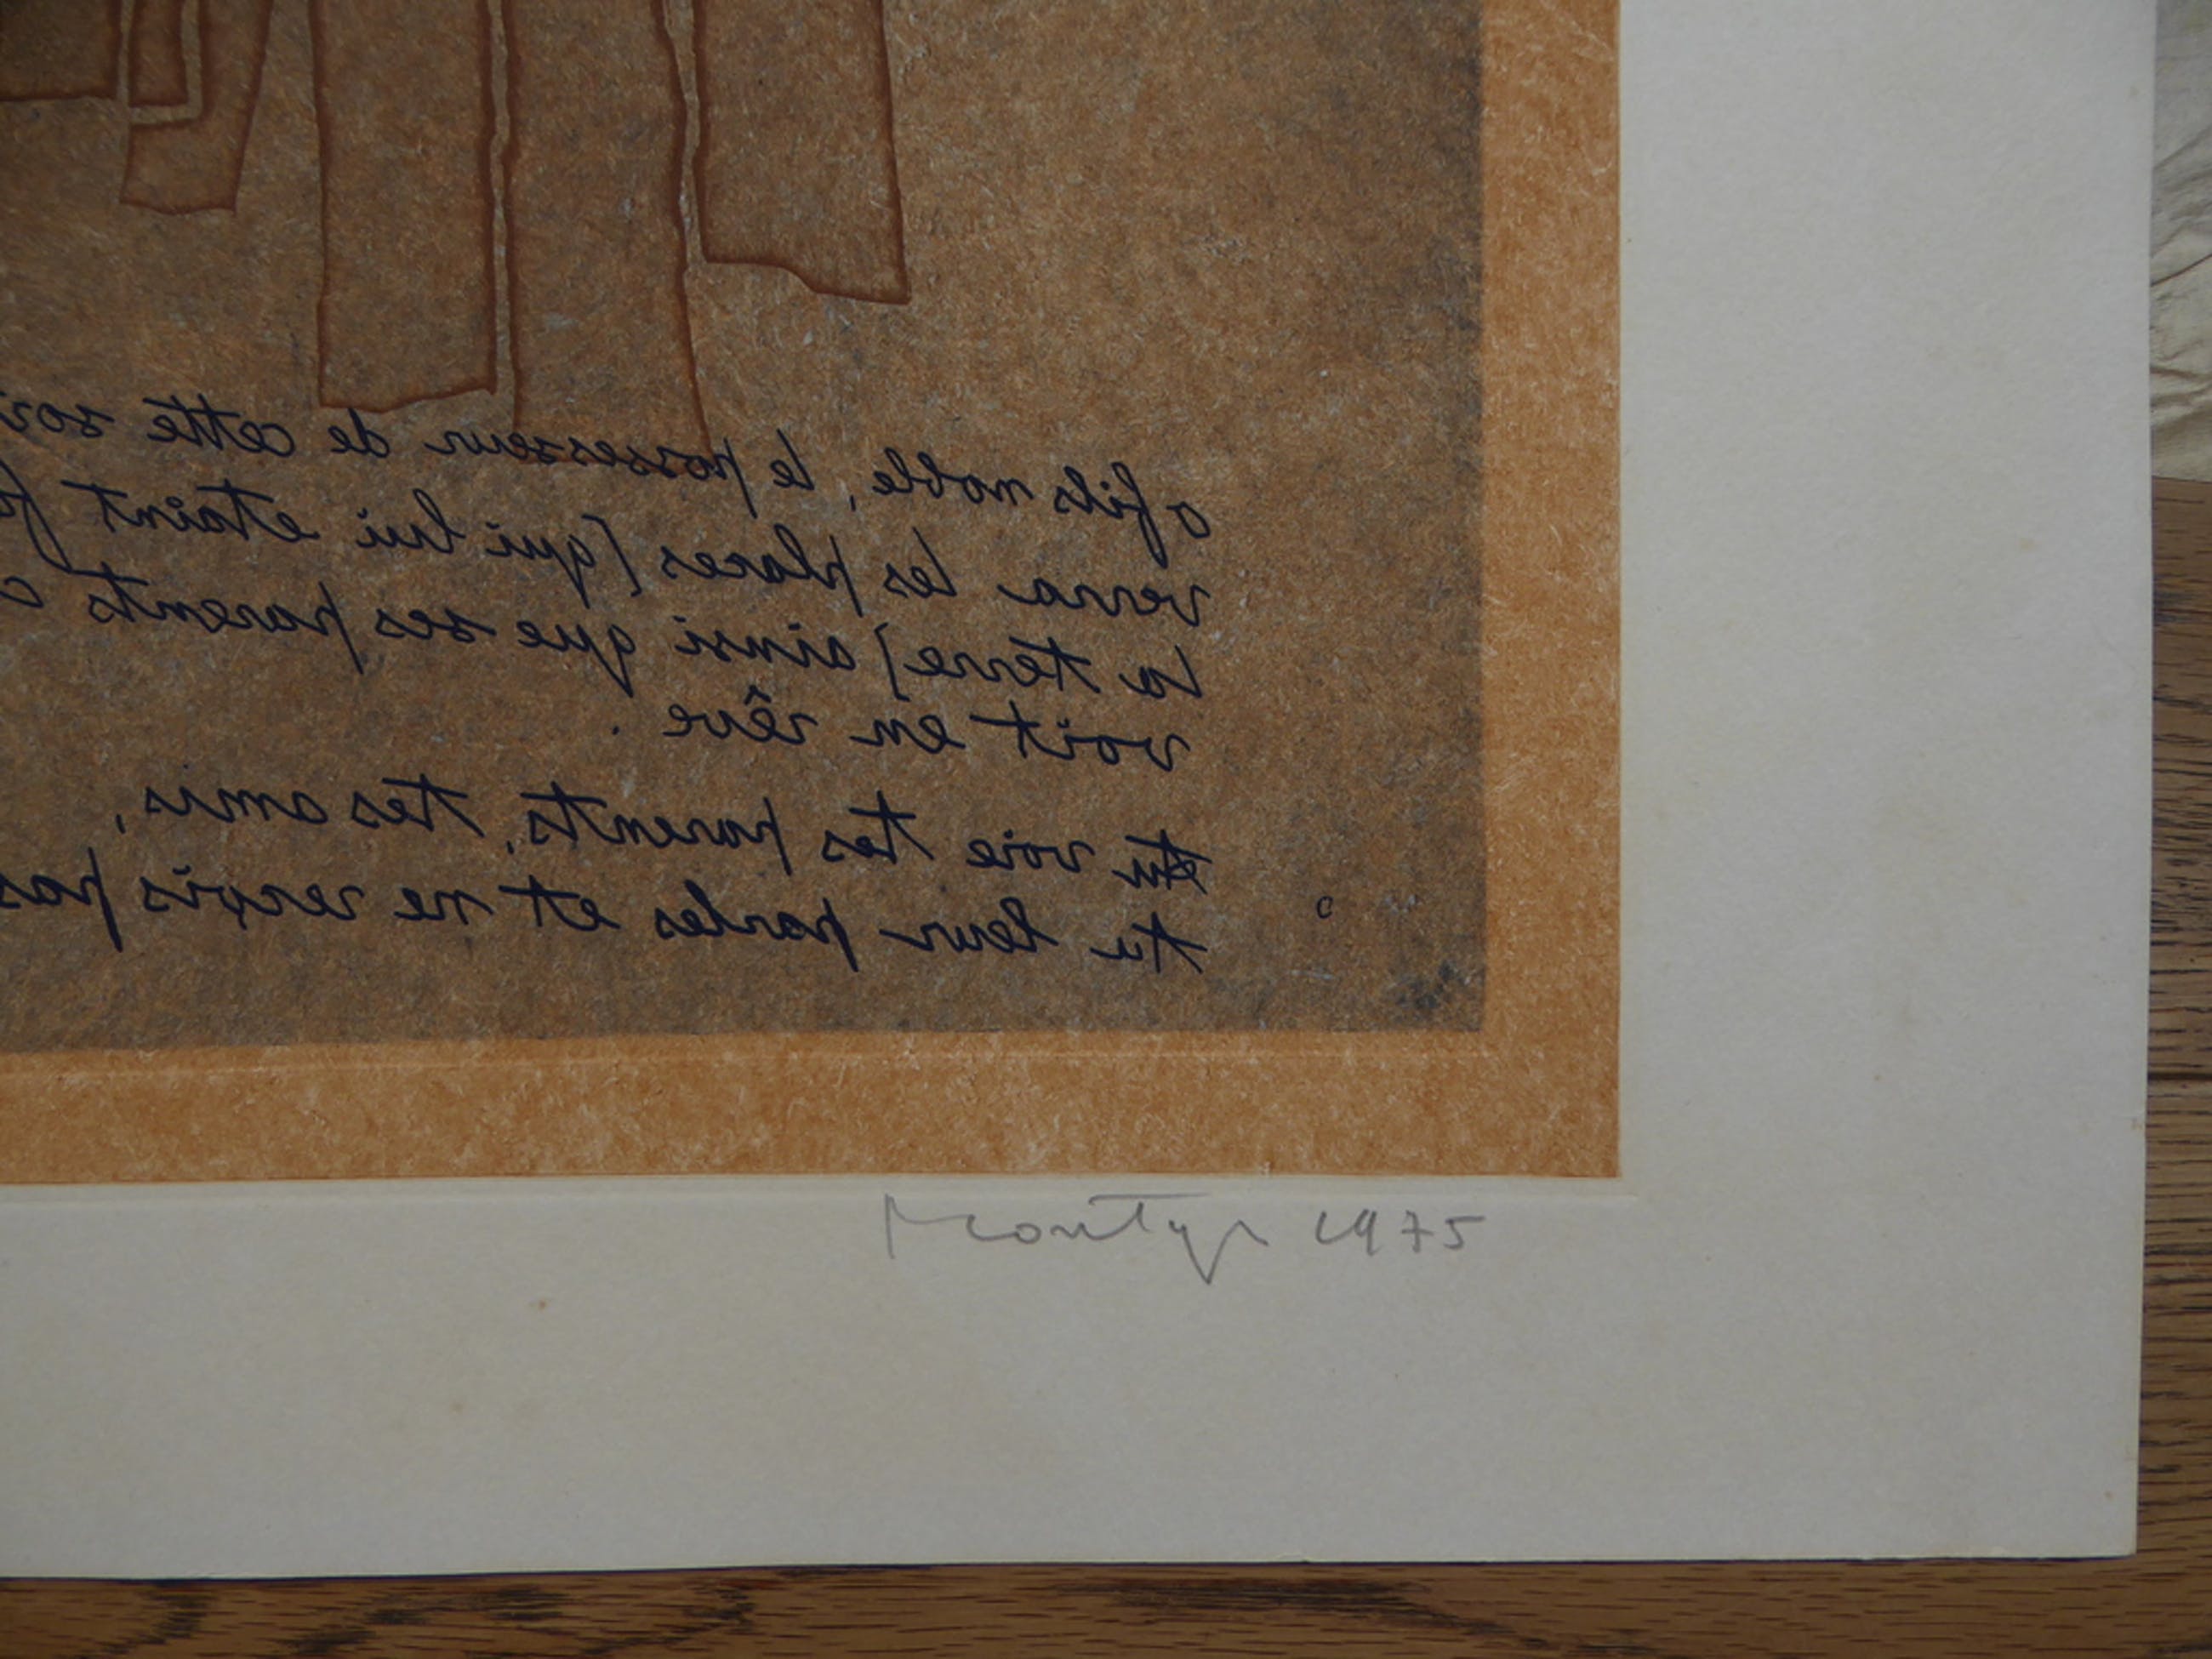 o fils noble, le possesseur de cette
verra les places [qui lui etaint
la terre] ainsi que ses parents
voit en rêve.
tu voie tes parents, tes amis,
tu leur parles et ne reçois pas
Montyr 1975